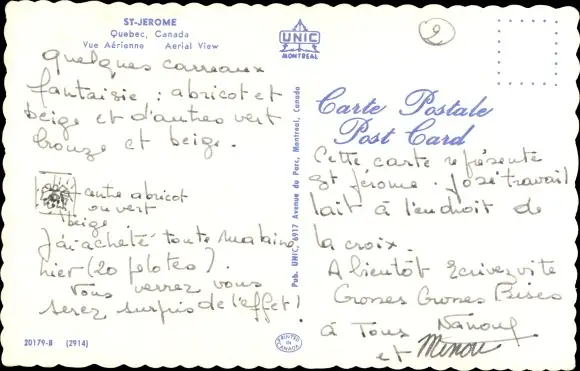 ST-JEROME
Quebec, Canada
Vue Aérienne Aerial View
quelques carreaux
fantaisie : abricot et
beige et d'autres vert
bronze et beige.
centre abricot
ou vert
beige
J'ai acheté toute ma laine
hier (20 pelotes).
Vous verrez vous
serez surpris de l'effet !
20179-B (2914)
UNIC
MONTREAL
Pub. UNIC, 6917 Avenue du Parc, Montreal, Canada
PRINTED IN CANADA
2
Carte Postale
Post Card
Cette carte représente
St Jérome. José travail
lait à l'endroit de
la croix.
A bientôt Ecrivez vite
Grosses Grosses Bises
à Tous Nanouf
et Minou